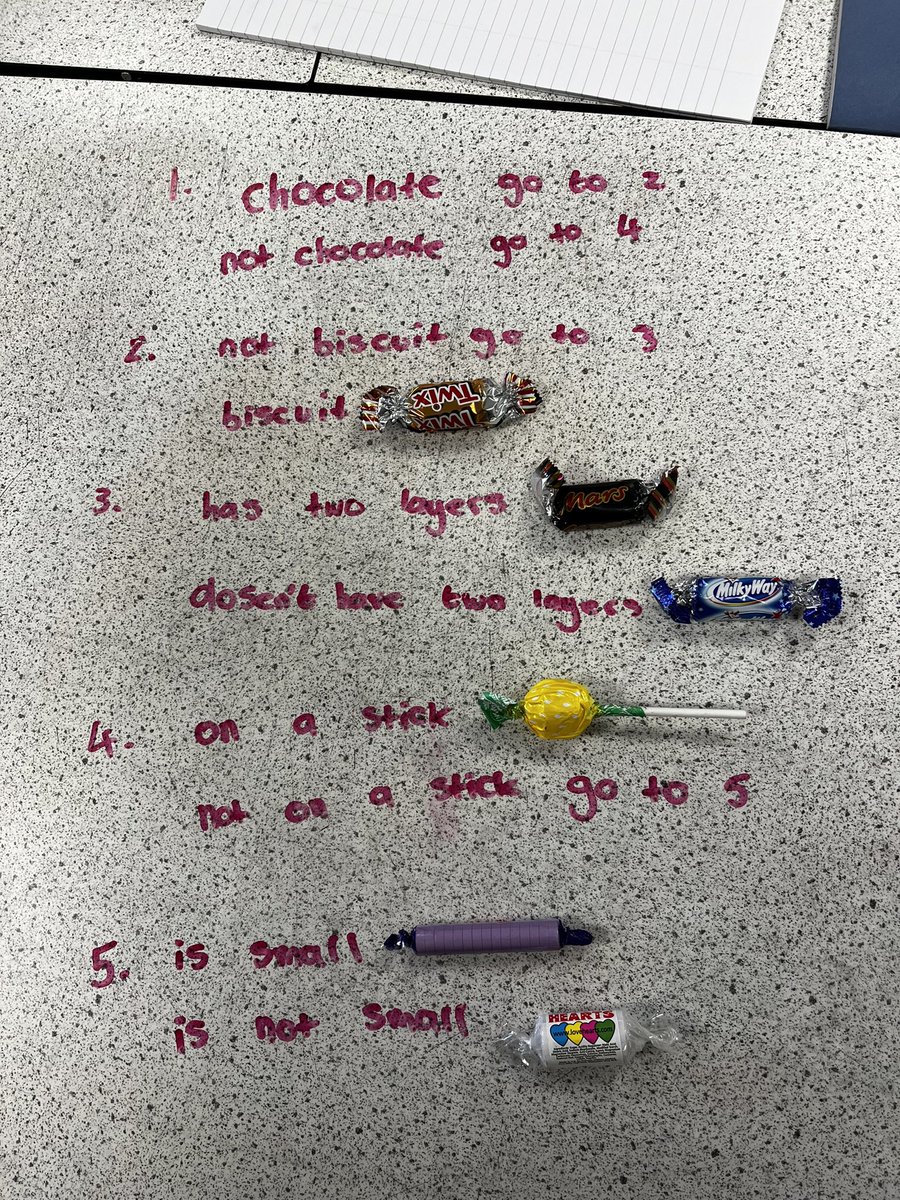 1. chocolate go to 2
not chocolate go to 4
2. not biscuit go to 3
biscuit
Twix
Twix
3. has two layers
Mars
dosen't have two layers
MilkyWay
4. on a stick
not on a stick go to 5
5. is small
is not small
HEARTS
www.lovehearts.com